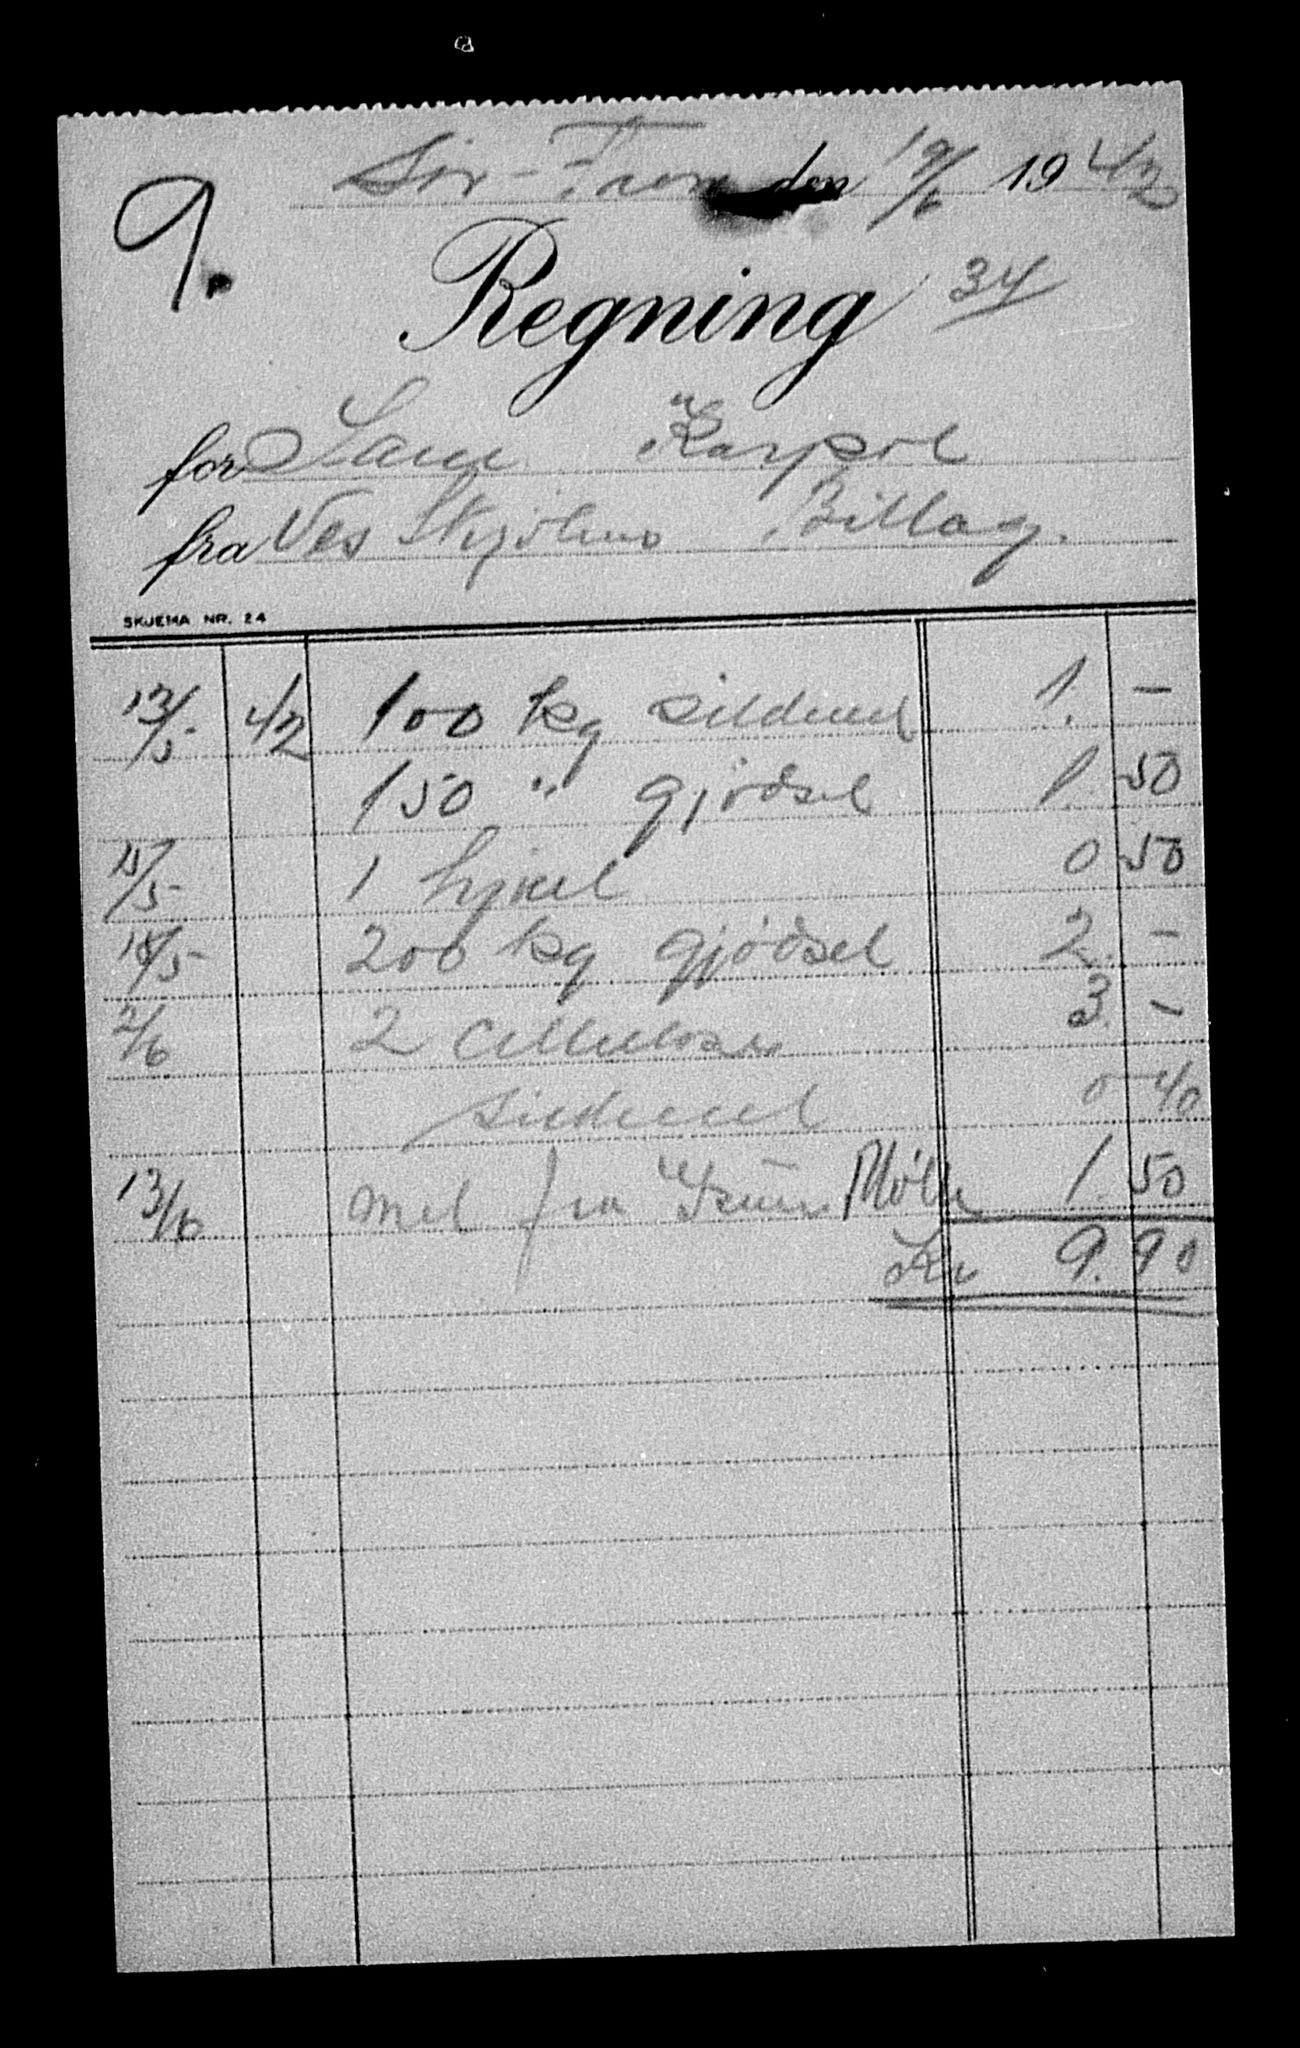 Sör-Fron den 19/6 1942
9.
Regning 34
for Sam Karpol
fra Ves Skjölens Billag.
SKJEMA NR. 24
13/5 42 100 kg sildmel 1. –
150 " gjödsel 1. 50
15/5 1 hjuel 0 50
18/5 200 kg gjödsel 2. –
2/6 2 Celluloser 3. –
sildmel 0 40
13/6 mel fra Mölle 1. 50
Kr 9.90